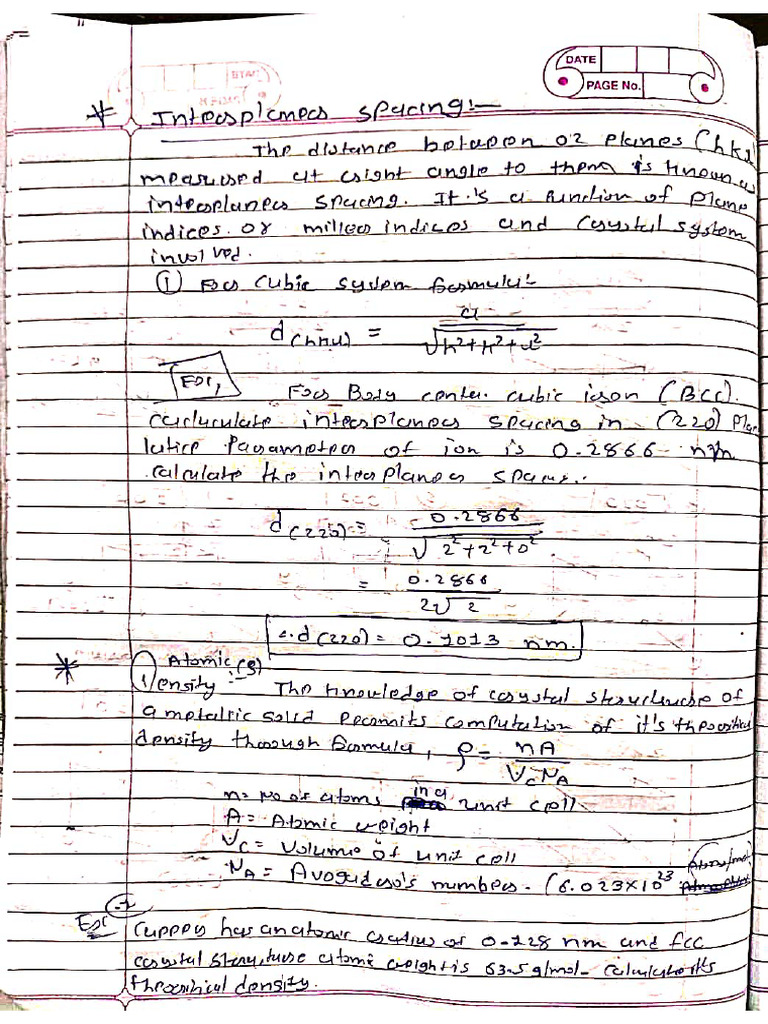 DATE
PAGE No.
* Interplaner spacing:-
The distance between 02 planes (hkl)
measured at right angle to them is known as
interplaner spacing. It's a function of plane
indices or miller indices and crystal system
involved.
① For cubic system formula:-
d(hkl) = a / √h²+k²+l²
Ex, For Body center cubic iron (BCC).
carluculate interplaner spacing in (220) plan
lattice Parameter of ion is 0.2866 nm
calculate the interplaner space..
d(220) = 0.2866 / √2²+2²+0²
= 0.2866 / 2√2
∴ d(220) = 0.1013 nm.
* ① Atomic (ρ)
Density :- The knowledge of crystal structure of
a metallic solid permits computation of it's theoritical
density through formula, ρ = nA / VcNA
n = No of atoms in a unit cell
A = Atomic weight
Vc = Volume of unit cell
NA = Avogadro's number - (6.023×10²³ Atoms/mol
Ex -2 Cupper has an atomic radius of 0.128 nm and fcc
crystal structure atomic weight is 63.5 g/mol- calculate it's
theoritical density.